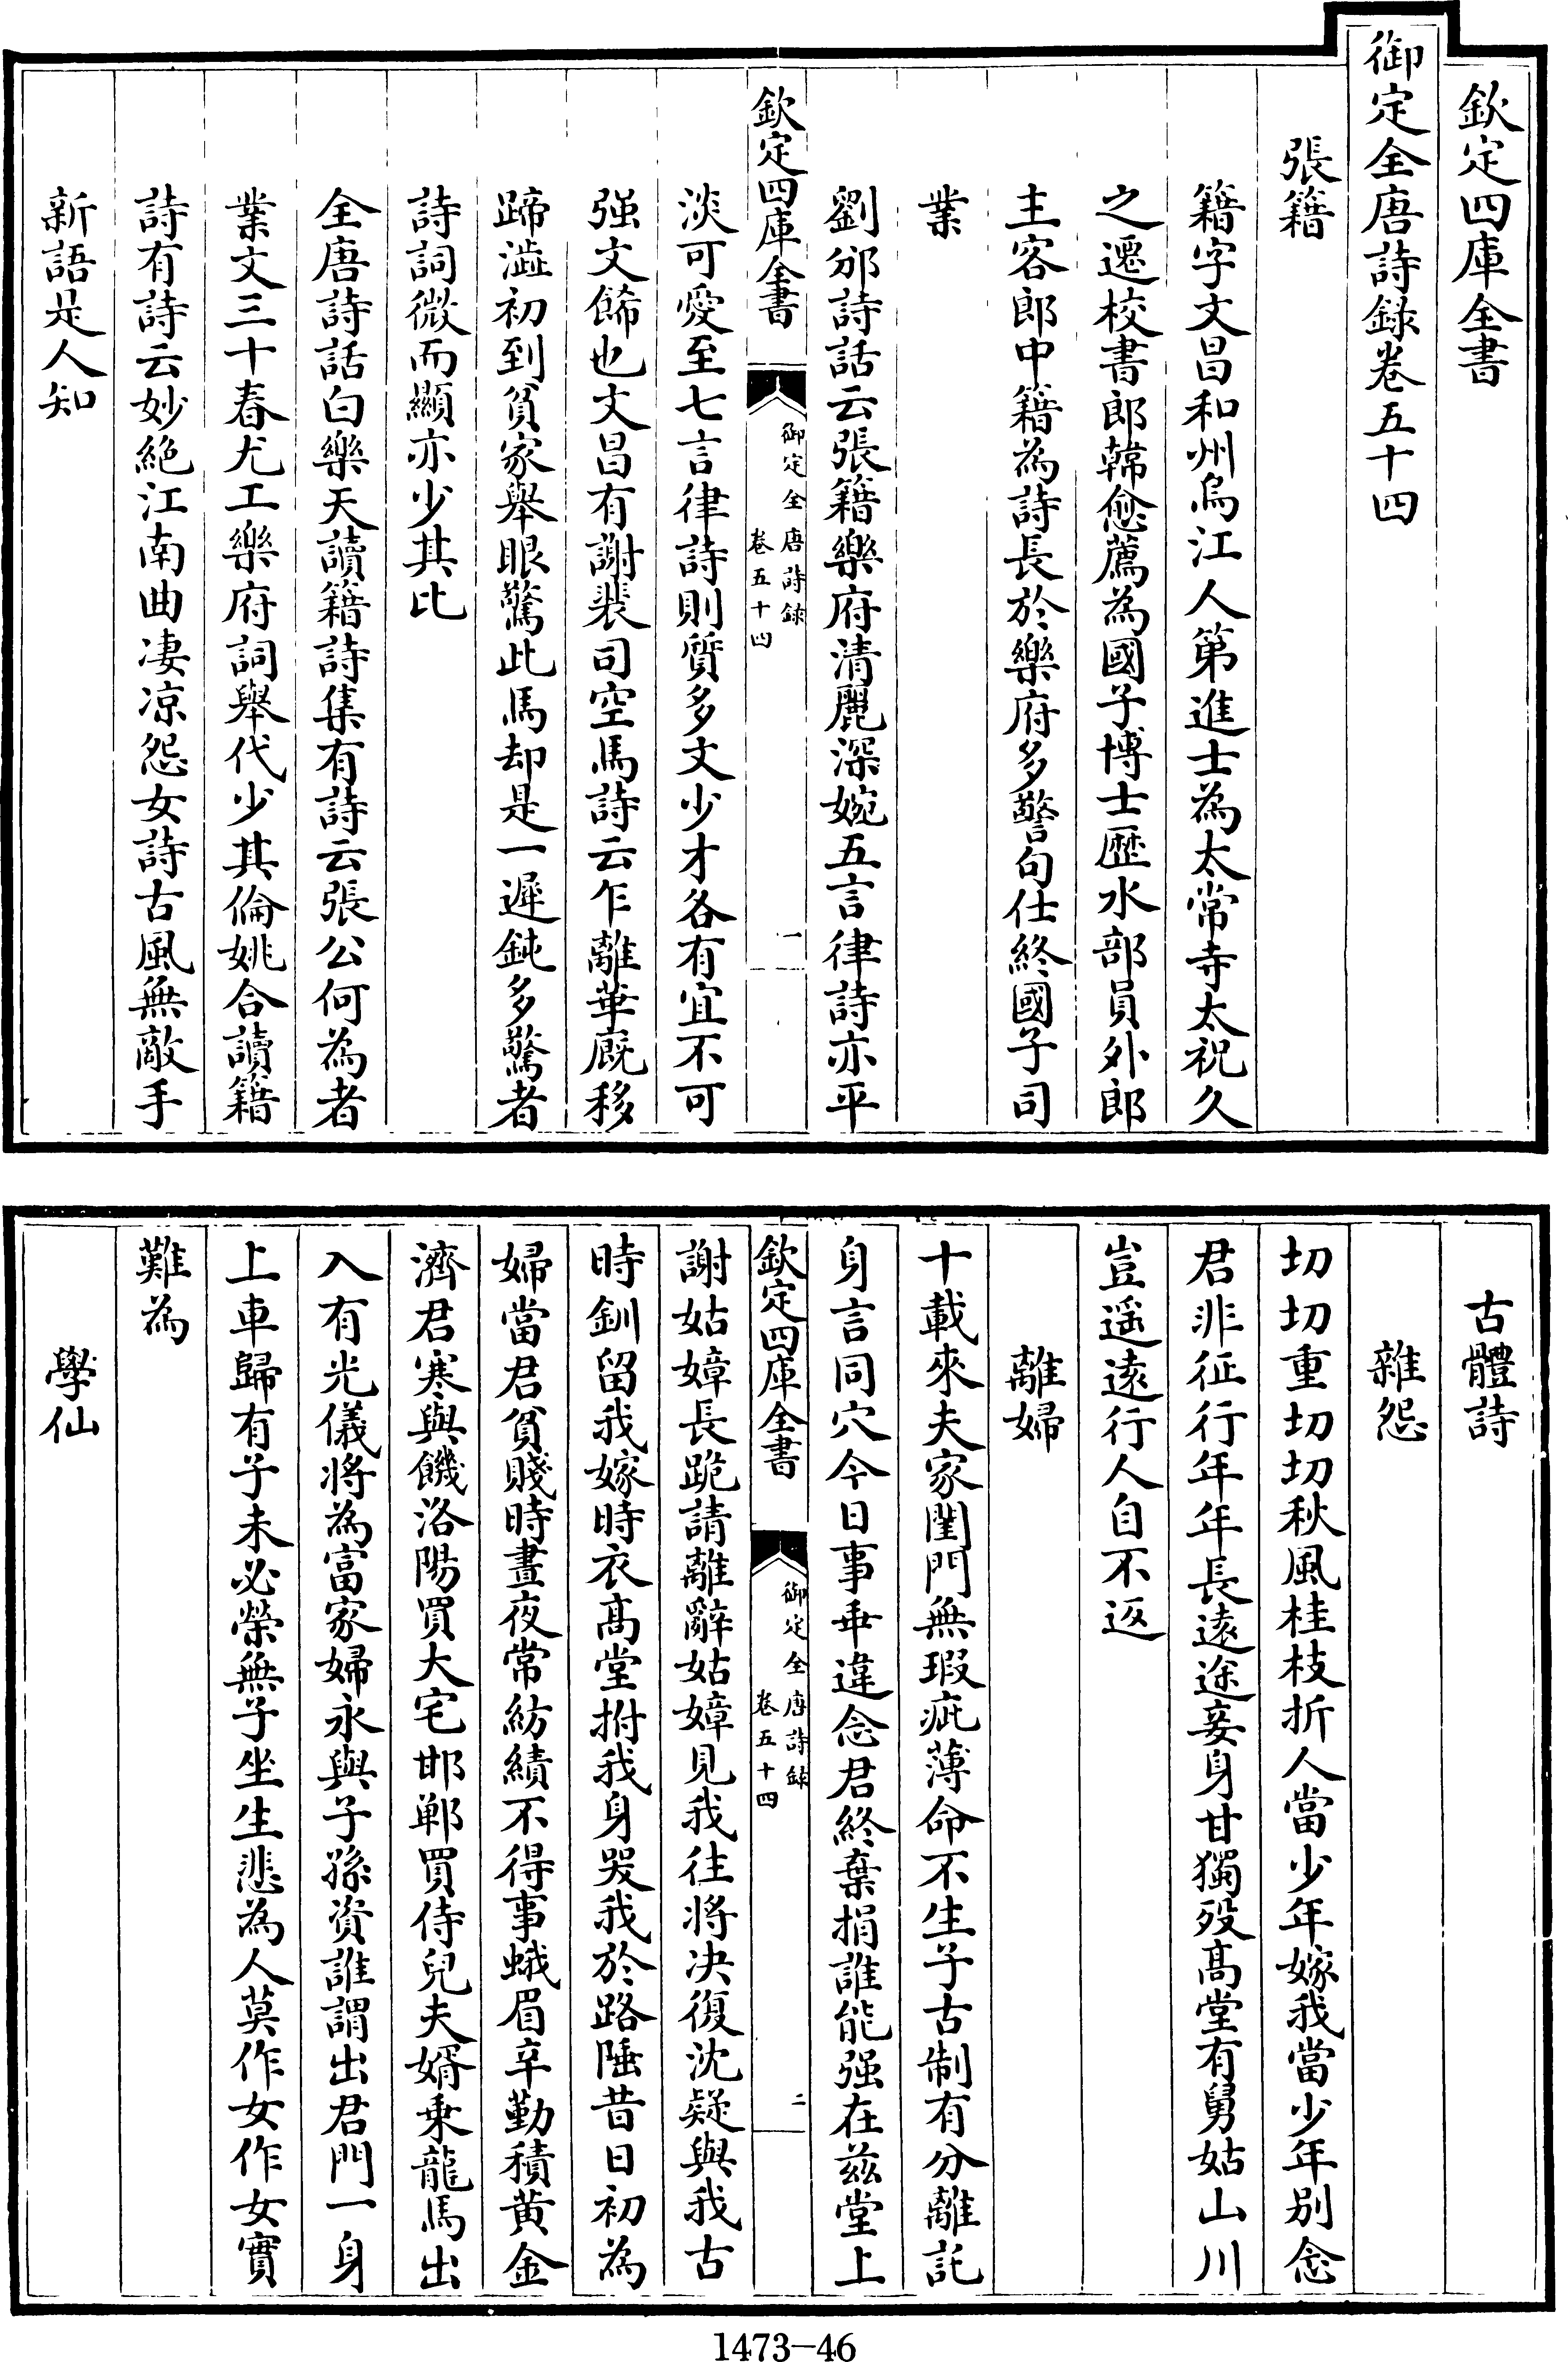 欽定四庫全書
御定全唐詩録卷五十四
張籍
籍字文昌和州烏江人第進士為太常寺太祝久
之遷校書郎韓愈薦為國子博士歷水部員外郎
主客郎中籍為詩長於樂府多警句仕終國子司
業
劉邠詩話云張籍樂府清麗深婉五言律詩亦平
欽定四庫全書
御定全唐詩録
卷五十四
一
淡可愛至七言律詩則質多文少才各有宜不可
强文飾也文昌有謝裴司空馬詩云乍離華廐移
蹄澁初到貧家舉眼驚此馬却是一遲鈍多驚者
詩詞微而顯亦少其比
全唐詩話白樂天讀籍詩集有詩云張公何為者
業文三十春尤工樂府詞舉代少其倫姚合讀籍
詩有詩云妙絶江南曲凄凉怨女詩古風無敵手
新語是人知
古體詩
雜怨
切切重切切秋風桂枝折人當少年嫁我當少年别念
君非征行年年長逺途妾身甘獨殁髙堂有舅姑山川
豈遥逺行人自不返
離婦
十載來夫家閨門無瑕疵薄命不生子古制有分離託
身言同穴今日事乖違念君終棄捐誰能强在兹堂上
欽定四庫全書
御定全唐詩録
卷五十四
二
謝姑嫜長跪請離辭姑嫜見我往將决復沈疑與我古
時釧留我嫁時衣髙堂拊我身哭我於路陲昔日初為
婦當君貧賤時晝夜常紡績不得事蛾眉辛勤積黄金
濟君寒與饑洛陽買大宅邯鄲買侍兒夫婿乗龍馬出
入有光儀將為富家婦永與子孫資誰謂出君門一身
上車歸有子未必榮無子坐生悲為人莫作女作女實
難為
學仙
1473-46